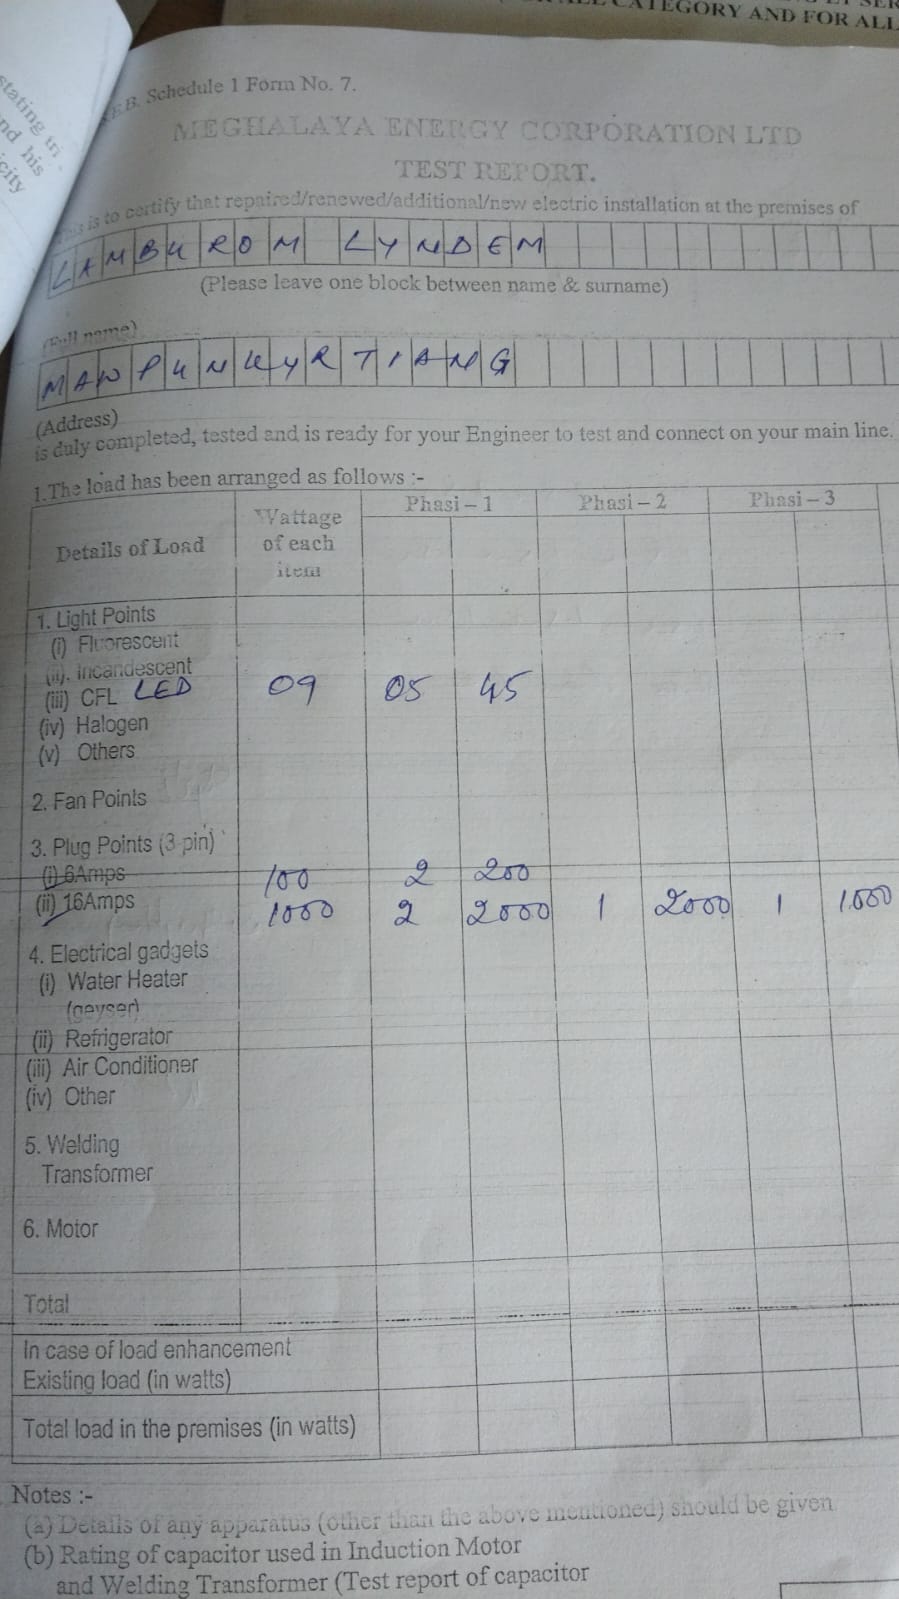 CATEGORY AND FOR ALL
stating
nd his
city
Schedule 1 Form No. 7.
MEGHALAYA ENERGY CORPORATION LTD
TEST REPORT.
This is to certify that repaired/renewed/additional/new electric installation at the premises of
LAMBUROM LYNDEM
(Please leave one block between name & surname)
(Full name)
MAWPUNKYRTIANG
(Address)
is duly completed, tested and is ready for your Engineer to test and connect on your main line.
1.The load has been arranged as follows :-
Details of Load Wattage of each item Phasi – 1 Phasi – 2 Phasi – 3
1. Light Points
(i) Fluorescent
(ii). Incandescent
(iii) CFL LED 09 05 45
(iv) Halogen
(v) Others
2. Fan Points
3. Plug Points (3-pin)
(i) 6Amps 100 2 200
(ii) 16Amps 1000 2 2000 1 2000 1 1000
4. Electrical gadgets
(i) Water Heater
(geyser)
(ii) Refrigerator
(iii) Air Conditioner
(iv) Other
5. Welding
Transformer
6. Motor
Total
In case of load enhancement
Existing load (in watts)
Total load in the premises (in watts)
Notes :-
(a) Details of any apparatus (other than the above mentioned) should be given.
(b) Rating of capacitor used in Induction Motor
and Welding Transformer (Test report of capacitor